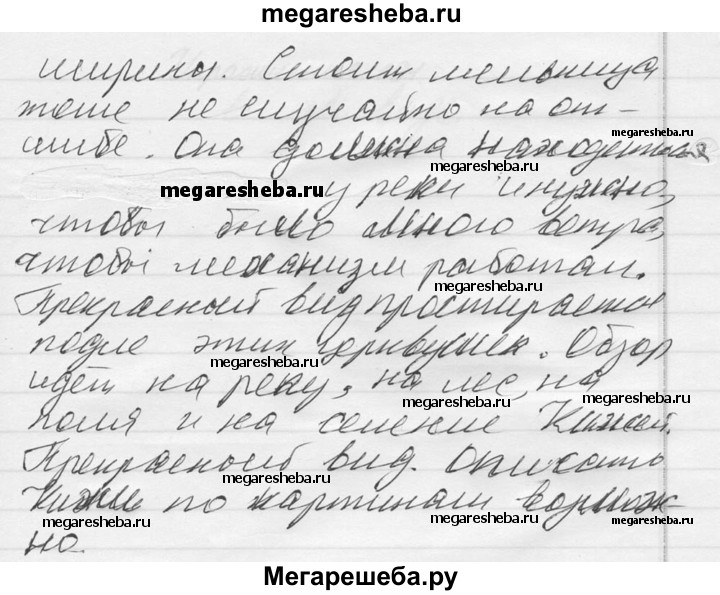 megaresheba.ru
ширины. Стоит мельница
тоже не случайно на от-
шибе. Она должна находиться
у реки и нужно,
чтобы было много ветра,
чтобы механизм работал.
Прекрасный вид простирается
подле этих деревушек. Обзор
идёт на реку, на лес, на
поля и на селение Кижей.
Прекрасный вид. Описать
Кижи по картинам возмож-
но.
megaresheba.ru
megaresheba.ru
megaresheba.ru
megaresheba.ru
megaresheba.ru
megaresheba.ru
megaresheba.ru
megaresheba.ru
megaresheba.ru
megaresheba.ru
megaresheba.ru
megaresheba.ru
Мегарешеба.ру